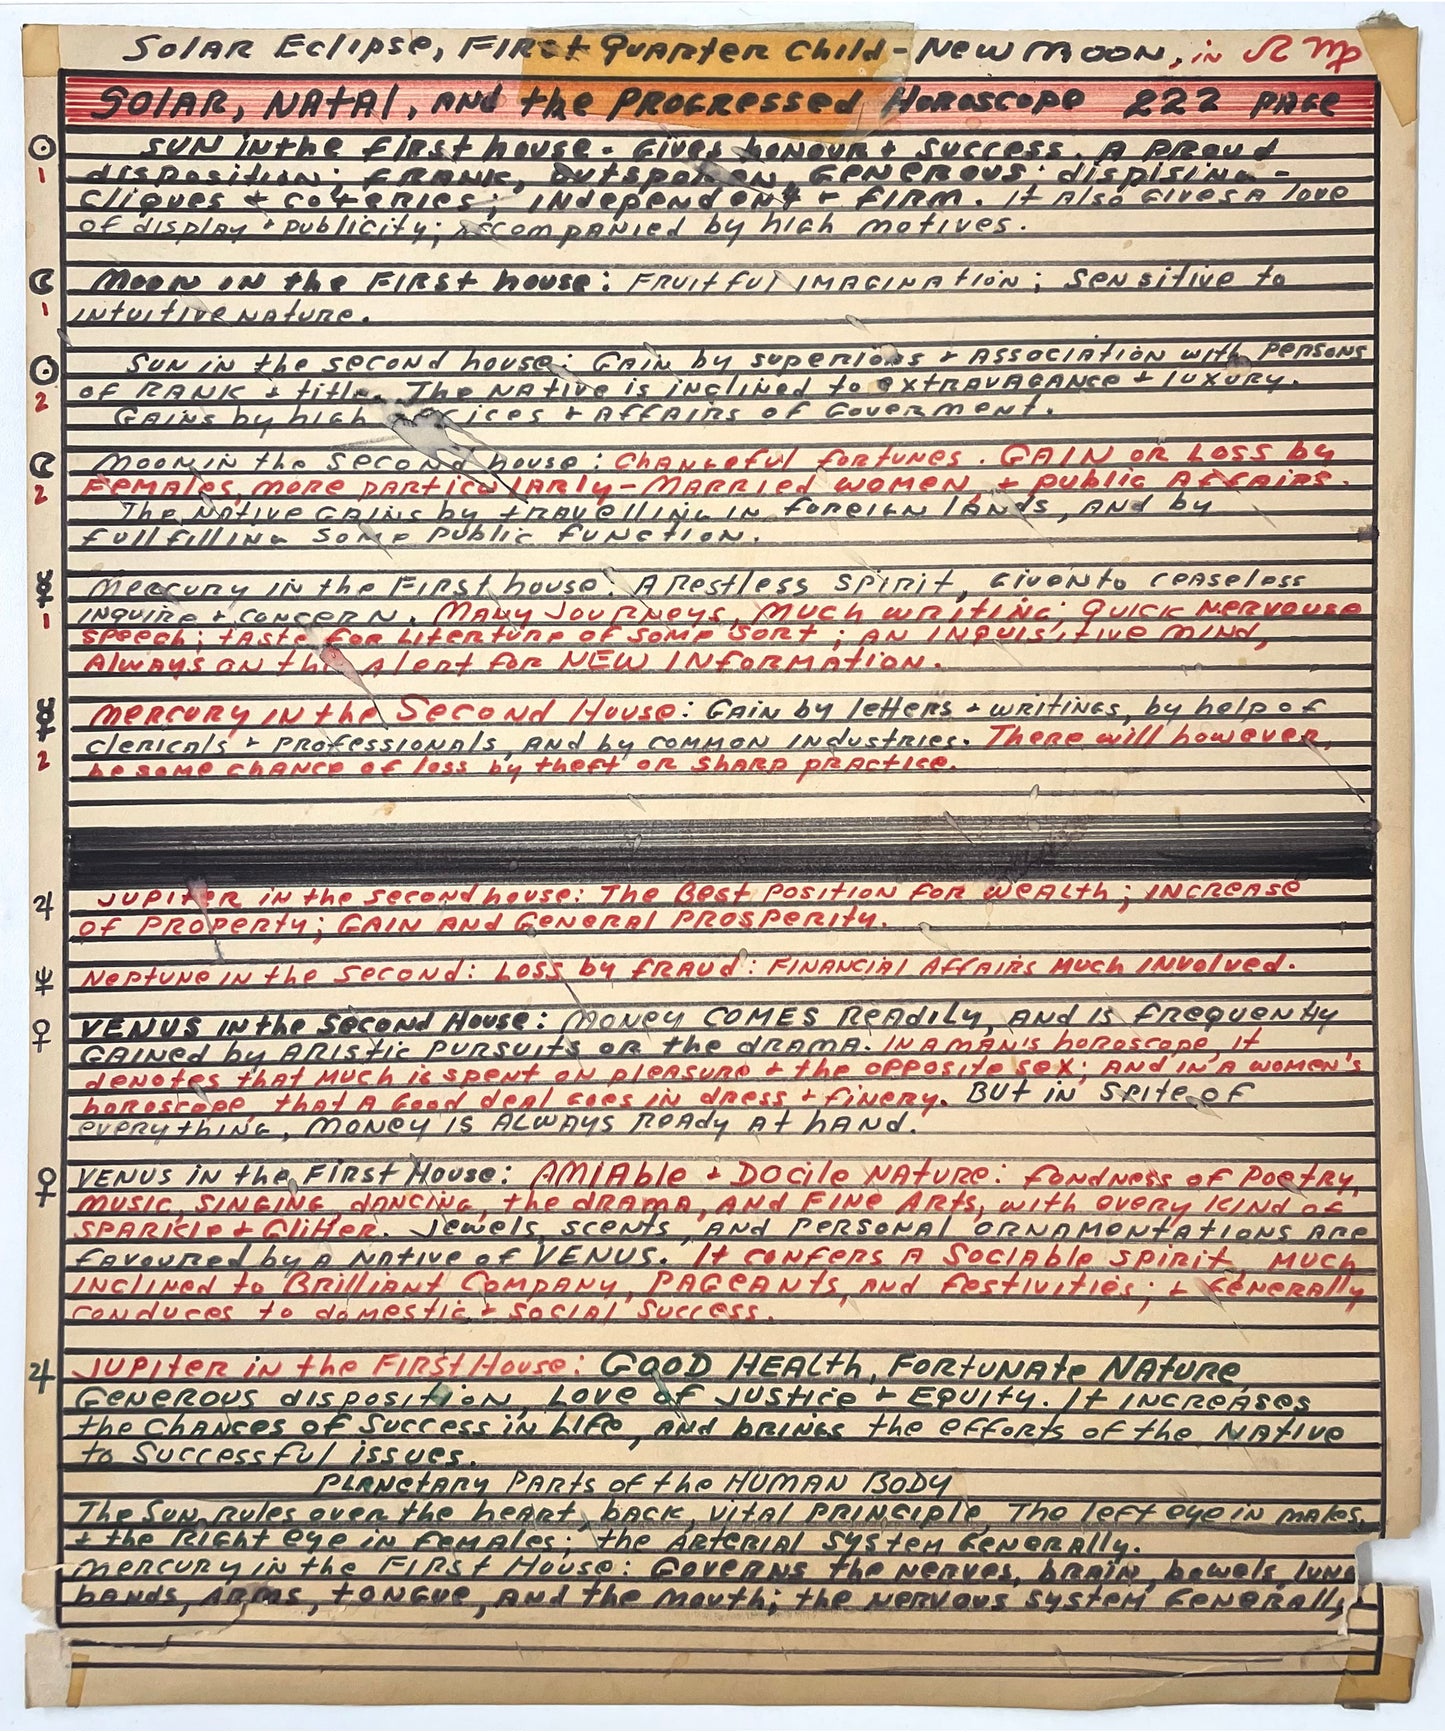 Solar Eclipse, First Quarter Child - New Moon, in ♌ ♍
Solar, Natal, and the Progressed Horoscope 222 page
☉ Sun in the first house. Gives honour + success. A proud
1 disposition; frank, outspoken, generous dispising -
cliques + coteries; independent + firm. It also gives a love
of display + publicity; accompanied by high motives.
☾ Moon in the First house: Fruitful imagination; sensitive to
1 intuitive nature.
☉ Sun in the second house: Gain by superiors + association with persons
of rank + title. The native is inclined to extravagance + luxury.
2 Gains by high ices + affairs of Goverment.
☾ Moon in the second house: Changeful fortunes. Gain or loss by
2 females, more particularly - married women + public affairs.
The native gains by travelling in foreign lands, and by
fullfilling some public function.
☿ Mercury in the First house: A restless spirit, given to ceaseless
1 inquire + concern. Many journeys, much writing; quick nervouse
speech; taste for literture of some sort; an inquisitive mind,
always on the alert for new information.
☿ Mercury in the Second House: Gain by letters + writings, by help of
clericals + professionals, and by common industries. There will however,
2 be some chance of loss by theft or sharp practice.
♃ Jupiter in the second house: The best position for wealth; increase
of property; gain and general prosperity.
♆ Neptune in the second: Loss by fraud: Financial affairs much involved.
♀ Venus in the Second House: Money comes readily, and is frequently
gained by aristic pursuits or the drama. In a man's horoscope it
denotes that much is spent on pleasure + the opposite sex; and in a women's
horoscope, that a good deal goes in dress + finery. But in spite of
everything, money is always ready at hand.
♀ Venus in the First House: Amiable + docile nature: fondness of poetry,
music, singing, dancing, the drama, and fine arts, with every kind of
sparkle + glitter. Jewels, scents, and personal ornamentations are
favoured by a native of Venus. It confers a sociable spirit, much
inclined to brilliant company, pageants, and festivities; + generally
conduces to domestic + social success.
♃ Jupiter in the First House: Good health, fortunate nature
generous disposition, love of justice + equity. It increases
the chances of success in life, and brings the efforts of the native
to successful issues.
Planetary Parts of the Human Body
The Sun rules over the heart, back, vital principle, The left eye in males,
+ the right eye in females; the arterial system generally.
Mercury in the First House: Governs the nerves, brain, bowels, lung
hands, arms, tongue, and the mouth; the nervous system generally